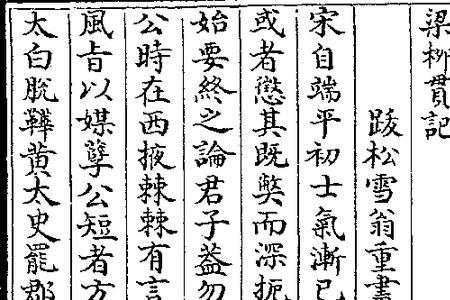 梁柳貫記
跋松雪翁重書
宋自端平初士氣漸已
或者懲其既弊而深扼
始要終之論君子蓋勿
公時在西掖棘棘有言
風旨以媒孽公短者方
太白脫鞾黄太史罷郡